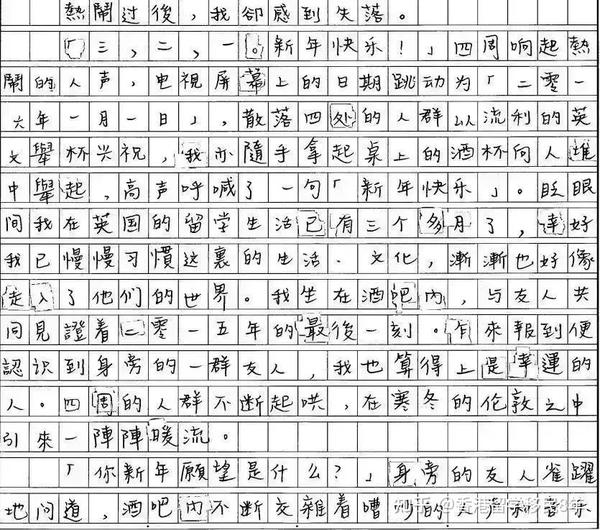 熱鬧过後，我卻感到失落。
「三，二，一。新年快乐！」四周响起熱
鬧的人声，电視屏幕上的日期跳动为「二零一
六年一月一日」，散落四处的人群以流利的英
文舉杯兴祝，我亦隨手拿起桌上的酒杯向人堆
中舉起，高声呼喊了一句「新年快乐」。眨眼
间我在英国的留学生活已有三个多月了，幸好
我已慢慢习慣这裏的生活、文化，漸漸也好像
走入了他们的世界。我坐在酒吧內，与友人共
同見證着二零一五年的最後一刻。乍來報到便
認识到身旁的一群友人，我也算得上是幸運的
人。四周的人群不断起哄，在寒冬的伦敦之中
引來一陣陣暖流。
「你新年願望是什么？」身旁的友人雀躍
地问道，酒吧內不断交雜着嘈
的人声和音乐
知乎 @香港留学移民8年